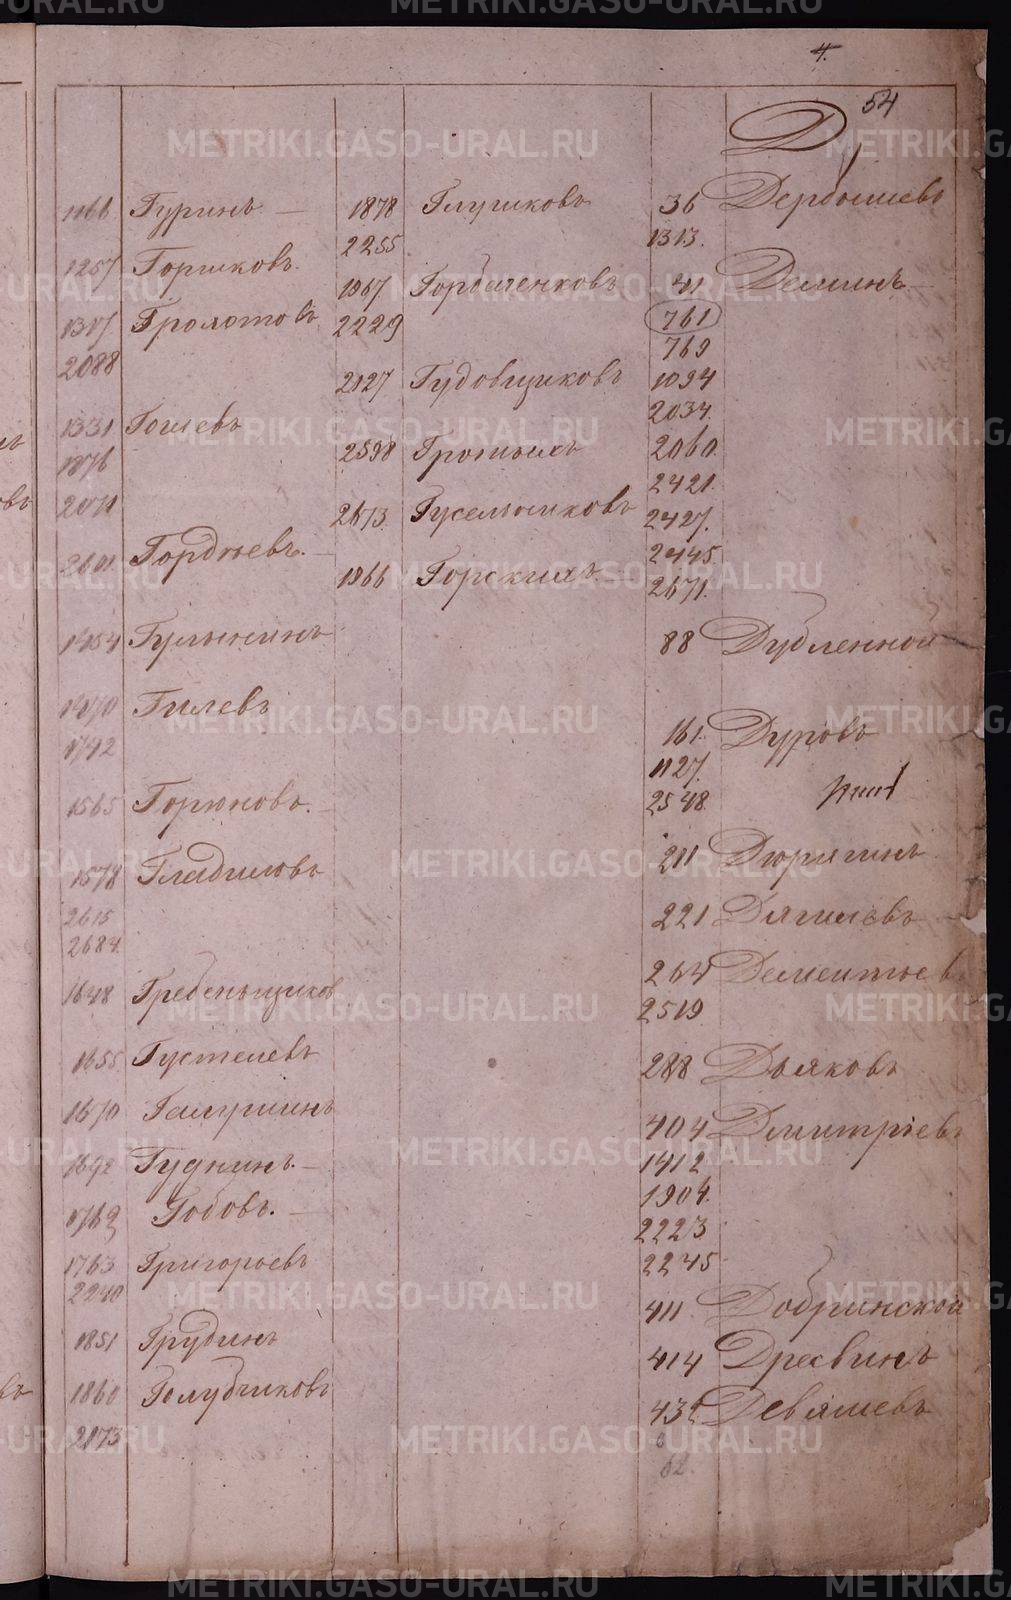 4.
54
Д
1166 Гуринъ
1257 Горшковъ.
2088
1331 Гогшевъ
1876
2071
2601 Гордѣевъ.
1454 Гулькинъ
1470 Гилевъ
1742
1565 Горюновъ.
1578 Гладиловъ
2615
2684.
1648 Гребеньщиков
1655 Густелевъ
1670
1692 Гудкинъ.
1769 Гобовъ.
1763 Григорьевъ
2240
1851 Грудинъ
1860 Голубчиковъ
2173
1878 Глушковъ
2255
1967 Горбаченковъ
2229
2127 Гудовщиковъ
2598
2673. Гусельниковъ
1866 Горскихъ
36 Дербышевъ
1313.
41 Деминъ
761
769
1094
2034.
2060
2421.
2427.
2445
2671.
88 Дубленной
161. Дуровъ
1127.
2548.
211 Дюрягинъ
221 Дягилевъ
264 Дементьевъ
2519
288 Дьяковъ
404 Дмитріевъ
1412
1904.
2223
2245
411 Добринской
414 Дресвинъ
432 Девяшевъ
METRIKI.GASO-URAL.RU